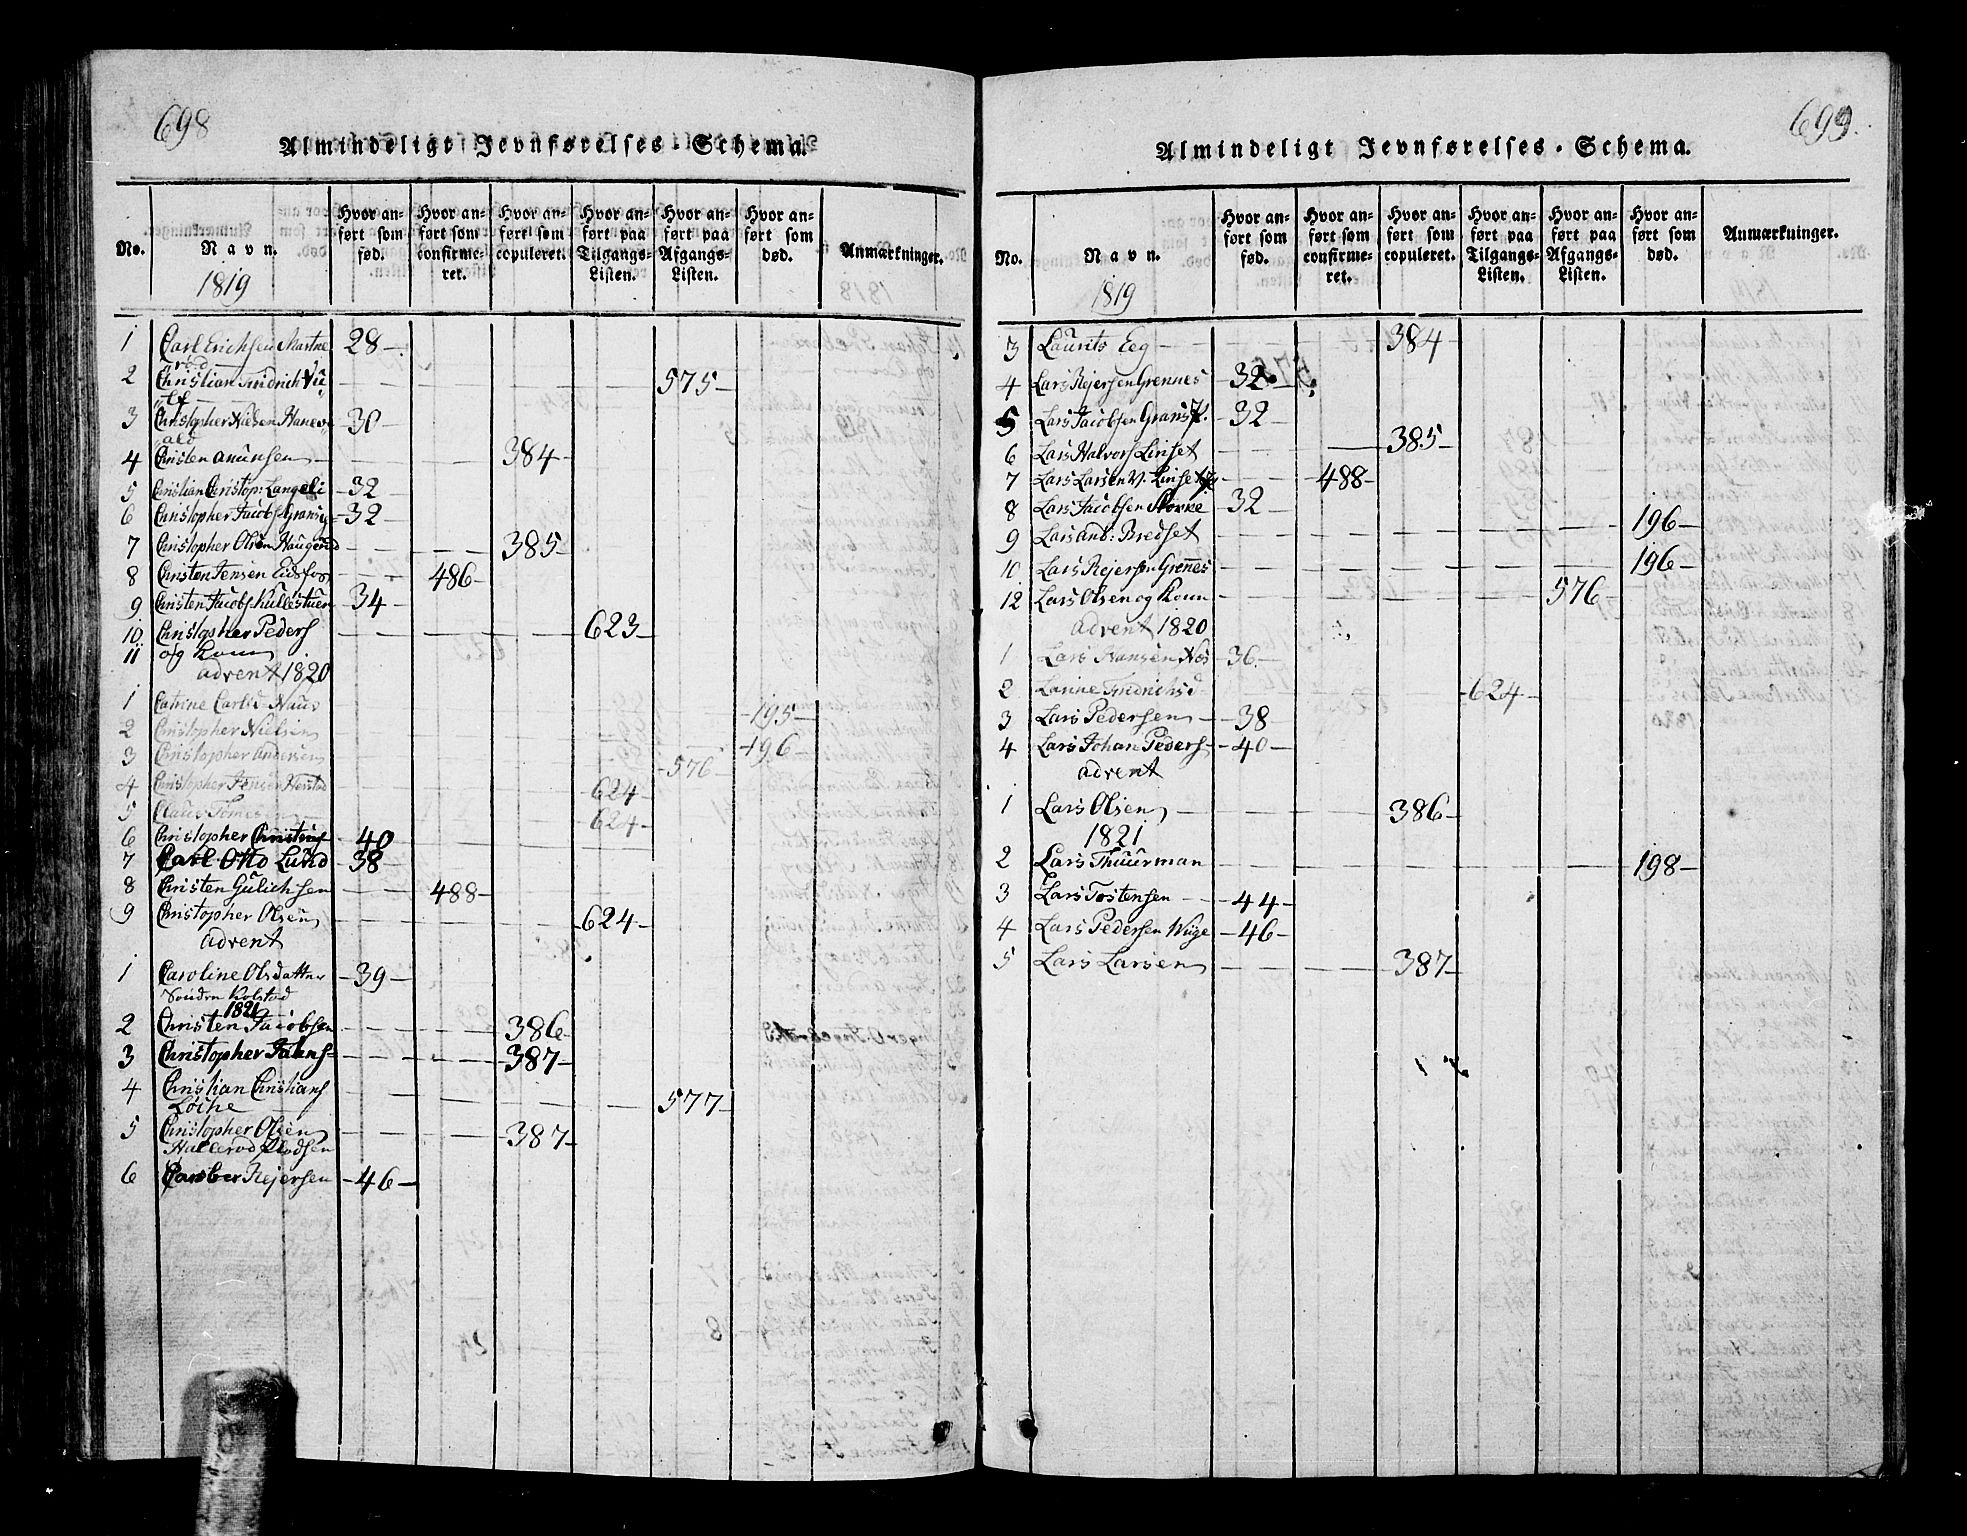 698
Almindeligt Jevnførelses-Schema.
No.
Navn.
Hvor anført som fød.
Hvor anført som confirmeret.
Hvor anført som copuleret.
Hvor anført paa Tilgangs-Listen.
Hvor anført paa Afgangs-Listen.
Hvor anført som død.
Anmærkninger.
1819
1 Carl Erichsen 28
2 Christian Fridrich 575
3 Christopher Nielsen 30
4 Christen Amunsen 384
5 Christian Christop: Langeli 32
6 Christopher Jacobs 32
7 Christopher Olsen Haugerud 385
8 Christen Jensen Eidsfos 486
9 Christen Jacobs. 34
10 Christopher Peders 623
11 og Konn
advent 1820
1 Catrine Carlsd 195
2 Christopher Nielsen 196
3 Christopher Andersen 576
4 Christopher Jensen 624
5 Claus 624
6 Christopher Christens 40
7 Carl Otto Lund 38
8 Christen Gulichsen 488
9 Christopher Olsen 624
advent
1 Caroline Olsdatter 39
Kolstad
1821
2 Christen Jacobsen 386
3 Christopher 387
4 Christian Christians 577
5 Christopher Olsen 387
6 Rejersen 46
699.
Almindeligt Jevnførelses-Schema.
No.
Navn.
Hvor anført som fød.
Hvor anført som confirmeret.
Hvor anført som copuleret.
Hvor anført paa Tilgangs-Listen.
Hvor anført paa Afgangs-Listen.
Hvor anført som død.
Anmærkninger.
1819
3 Laurits Eeg 384
4 Lars Rejersen Grennes 32
5 Lars Jacobsen 32
6 Lars Halvors Linset 385
7 Lars Larsen 488
8 Lars Jacobsen 32
9 Lars And: Bredset 196
10 Lars Rejersen Grenes 196
12 Lars Olsen og Konn 576
advent 1820
1 Lars Hansen 36
2 Larine Fredrichsd 624
3 Lars Pedersen 38
4 Lars Johan Peders 40
advent
1 Lars Olsen 386
1821
2 Lars Thuurman 198
3 Lars Tostensen 44
4 Lars Pedersen Wiige 46
5 Lars Larsen 387